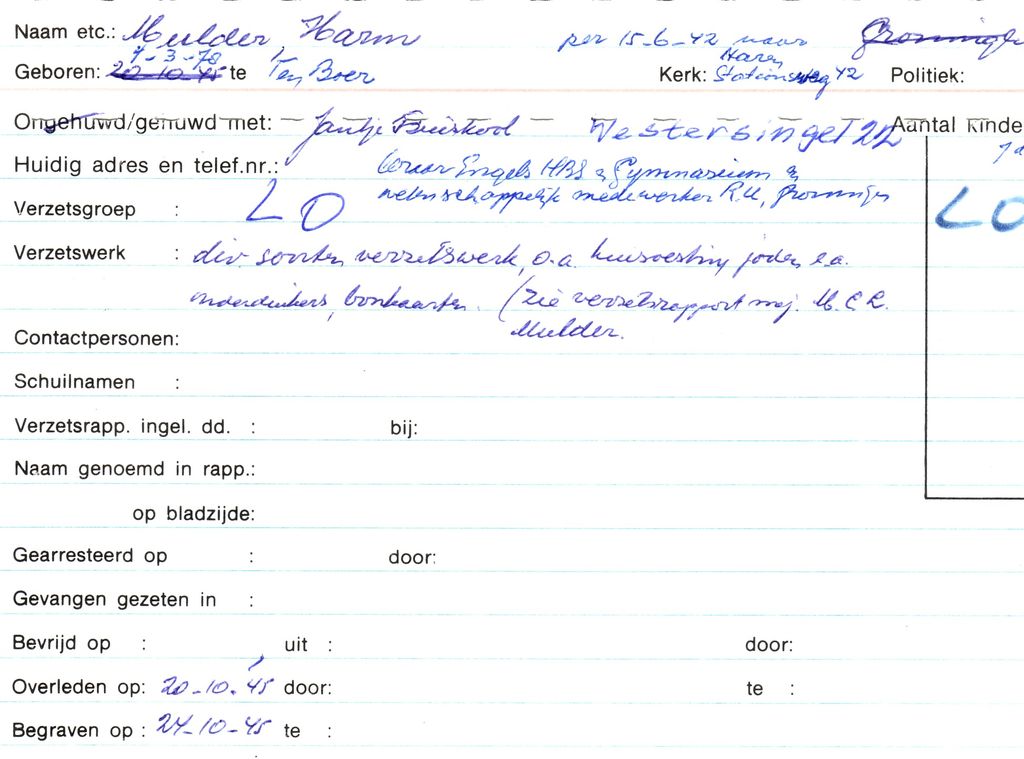 Naam etc.: Mulder, Harm per 15-6-42 naar Groningen
7-3-78 Haren
Geboren: 20-10-45 te Ten Boer Kerk: Stationsweg 42 Politiek:
Ongehuwd/gehuwd met: Jantje Buiskool Westersingel 22 Aantal kinde
Huidig adres en telef.nr.: leraar Engels HBS & Gymnasium &
wetenschappelijk medewerker R.U. Groningen
Verzetsgroep : LO LO
Verzetswerk : div. soorten verzetswerk, o.a. huisvesting joden e.a.
onderduikers, bonkaarten. (zie verzetsrapport mej. M.C.R.
Mulder.
Contactpersonen:
Schuilnamen :
Verzetsrapp. ingel. dd. : bij:
Naam genoemd in rapp.:
op bladzijde:
Gearresteerd op : door:
Gevangen gezeten in :
Bevrijd op : uit : door:
Overleden op: 20-10-45 door: te :
Begraven op : 24-10-45 te :